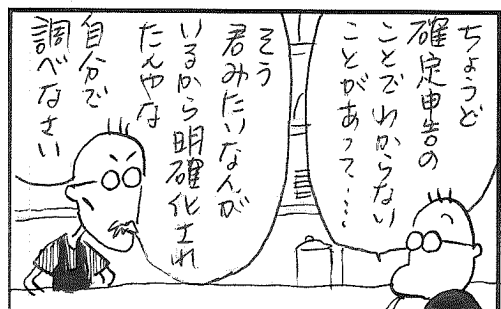 ちょうど
確定申告の
ことでわからない
ことがあって‥‥
そう
君みたいなんが
いるから明確化され
たんやな
自分で
調べなさい